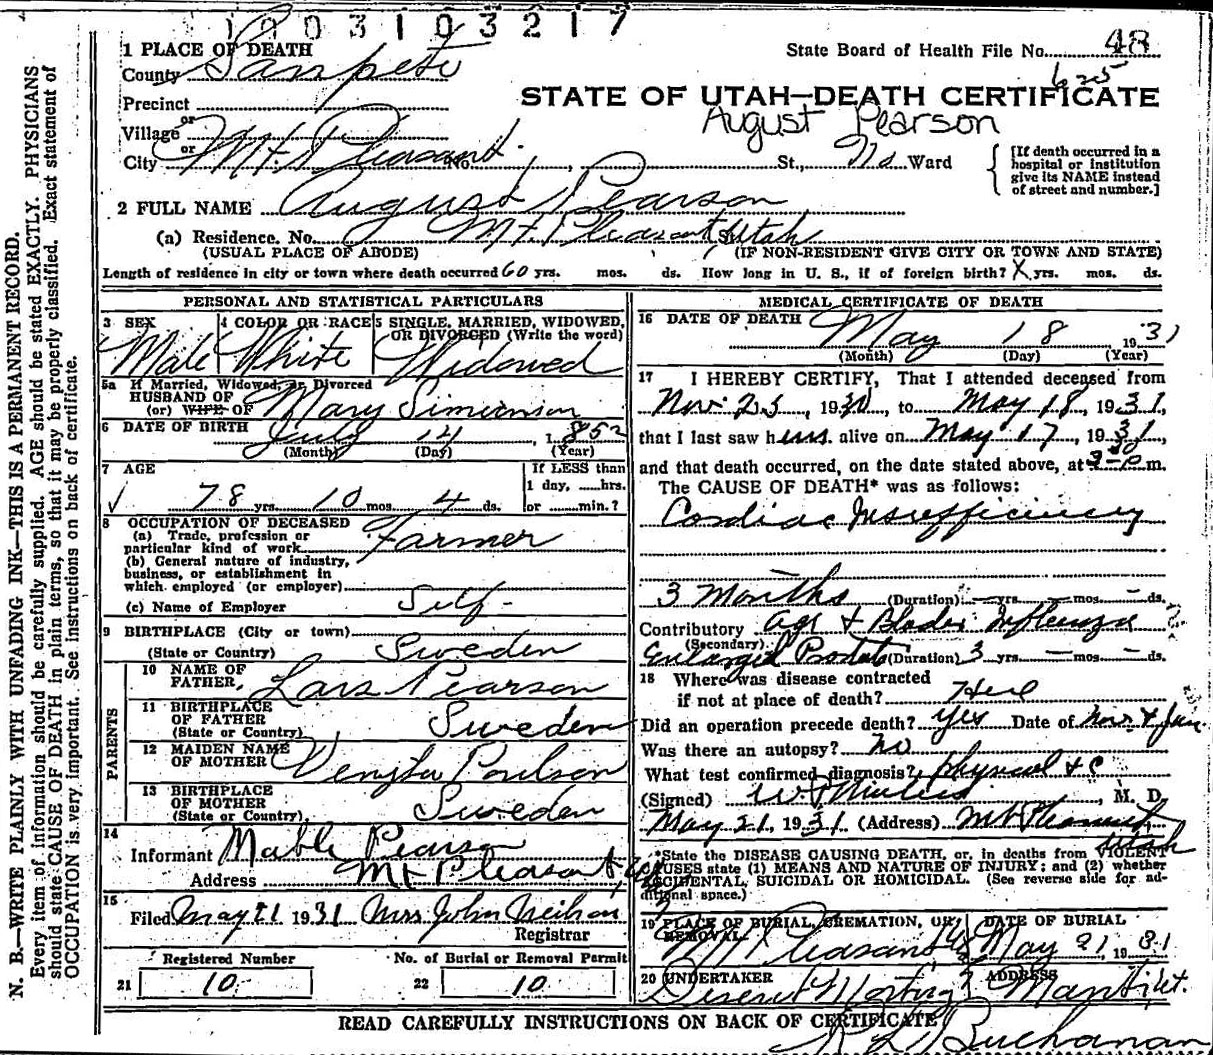 1003103217
1 PLACE OF DEATH
State Board of Health File No. 48
County Sanpete
625
Precinct
STATE OF UTAH—DEATH CERTIFICATE
or
August Pearson
Village
or
City Mt. Pleasant. No. , St., Ward
{ [If death occurred in a
hospital or institution
give its NAME instead
of street and number.]
2 FULL NAME August Pearson
(a) Residence. No. Mt. Pleasant, St. Utah
(USUAL PLACE OF ABODE) (IF NON-RESIDENT GIVE CITY OR TOWN AND STATE)
Length of residence in city or town where death occurred 60 yrs. mos. ds. How long in U. S., if of foreign birth? X yrs. mos. ds.
PERSONAL AND STATISTICAL PARTICULARS
3 SEX 4 COLOR OR RACE 5 SINGLE, MARRIED, WIDOWED,
OR DIVORCED (Write the word)
Male White Widowed
5a If Married, Widowed, or Divorced
HUSBAND OF
(or) WIFE OF Mary
6 DATE OF BIRTH July 14, 1852
(Month) (Day) (Year)
7 AGE If LESS than
1 day, hrs.
78 yrs. 10 mos. 4 ds. or min.?
8 OCCUPATION OF DECEASED
(a) Trade, profession or
particular kind of work Farmer
(b) General nature of industry,
business, or establishment in
which employed (or employer)
(c) Name of Employer Self
9 BIRTHPLACE (City or town)
(State or Country) Sweden
PARENTS
10 NAME OF
FATHER, Lars Pearson
11 BIRTHPLACE
OF FATHER
(State or Country) Sweden
12 MAIDEN NAME
OF MOTHER Poulson
13 BIRTHPLACE
OF MOTHER
(State or Country) Sweden
14
Informant Mable Pearson
Address Mt Pleasant, Ut
15
Filed May 21 1931 Mrs John Neilson
Registrar
Registered Number No. of Burial or Removal Permit
21 10 22 10
MEDICAL CERTIFICATE OF DEATH
16 DATE OF DEATH May 18 1931
(Month) (Day) (Year)
17 I HEREBY CERTIFY, That I attended deceased from
Nov 25, 1930, to May 18, 1931,
that I last saw him alive on May 17, 1931,
and that death occurred, on the date stated above, at 3 30 p m.
The CAUSE OF DEATH* was as follows:
Cardiac Insufficiency
3 Months (Duration) — yrs — mos. — ds.
Contributory Age + Influenza
(Secondary)
Enlarged Prostate (Duration) 3 yrs. — mos. — ds.
18 Where was disease contracted
if not at place of death? Here
Did an operation precede death? Yes Date of Nov & Jan.
Was there an autopsy? no
What test confirmed diagnosis? physical + c
(Signed) , M. D.
May 21, 1931 (Address) Mt Pleasant,
Utah
*State the DISEASE CAUSING DEATH, or, in deaths from VIOLENT
CAUSES state (1) MEANS AND NATURE OF INJURY; and (2) whether
ACCIDENTAL, SUICIDAL OR HOMICIDAL. (See reverse side for ad-
ditional space.)
19 PLACE OF BURIAL, CREMATION, OR REMOVAL DATE OF BURIAL
Mt Pleasant Ut May 21, 1931
20 UNDERTAKER ADDRESS
Deseret Manti, Ut.
R L Buchanan
READ CAREFULLY INSTRUCTIONS ON BACK OF CERTIFICATE
N. B.—WRITE PLAINLY WITH UNFADING INK—THIS IS A PERMANENT RECORD.
Every item of information should be carefully supplied. AGE should be stated EXACTLY. PHYSICIANS
should state CAUSE OF DEATH in plain terms, so that it may be properly classified. Exact statement of
OCCUPATION is very important. See instructions on back of certificate.